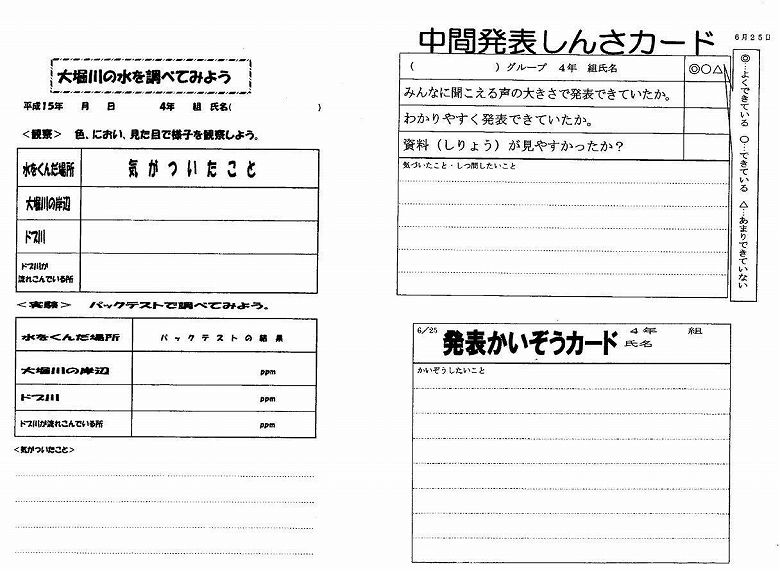 大堀川の水を調べてみよう
平成15年　月　日　4年　組 氏名(　)
＜観察＞ 色、におい、見た目で様子を観察しよう。
水をくんだ場所　気がついたこと
大堀川の岸辺
ドブ川
ドブ川が
流れこんでいる所
＜実験＞ パックテストで調べてみよう。
水をくんだ場所　パックテストの結果
大堀川の岸辺　ppm
ドブ川　ppm
ドブ川が流れこんでいる所　ppm
＜気がついたこと＞
中間発表しんさカード
6月25日
(　)グループ 4年 組氏名　◎○△
みんなに聞こえる声の大きさで発表できていたか。
わかりやすく発表できていたか。
資料（しりょう）が見やすかったか？
気づいたこと・しつ問したいこと
◎…よくできている ○…できている △…あまりできていない
6/25 発表かいぞうカード 4年　組
氏名
かいぞうしたいこと